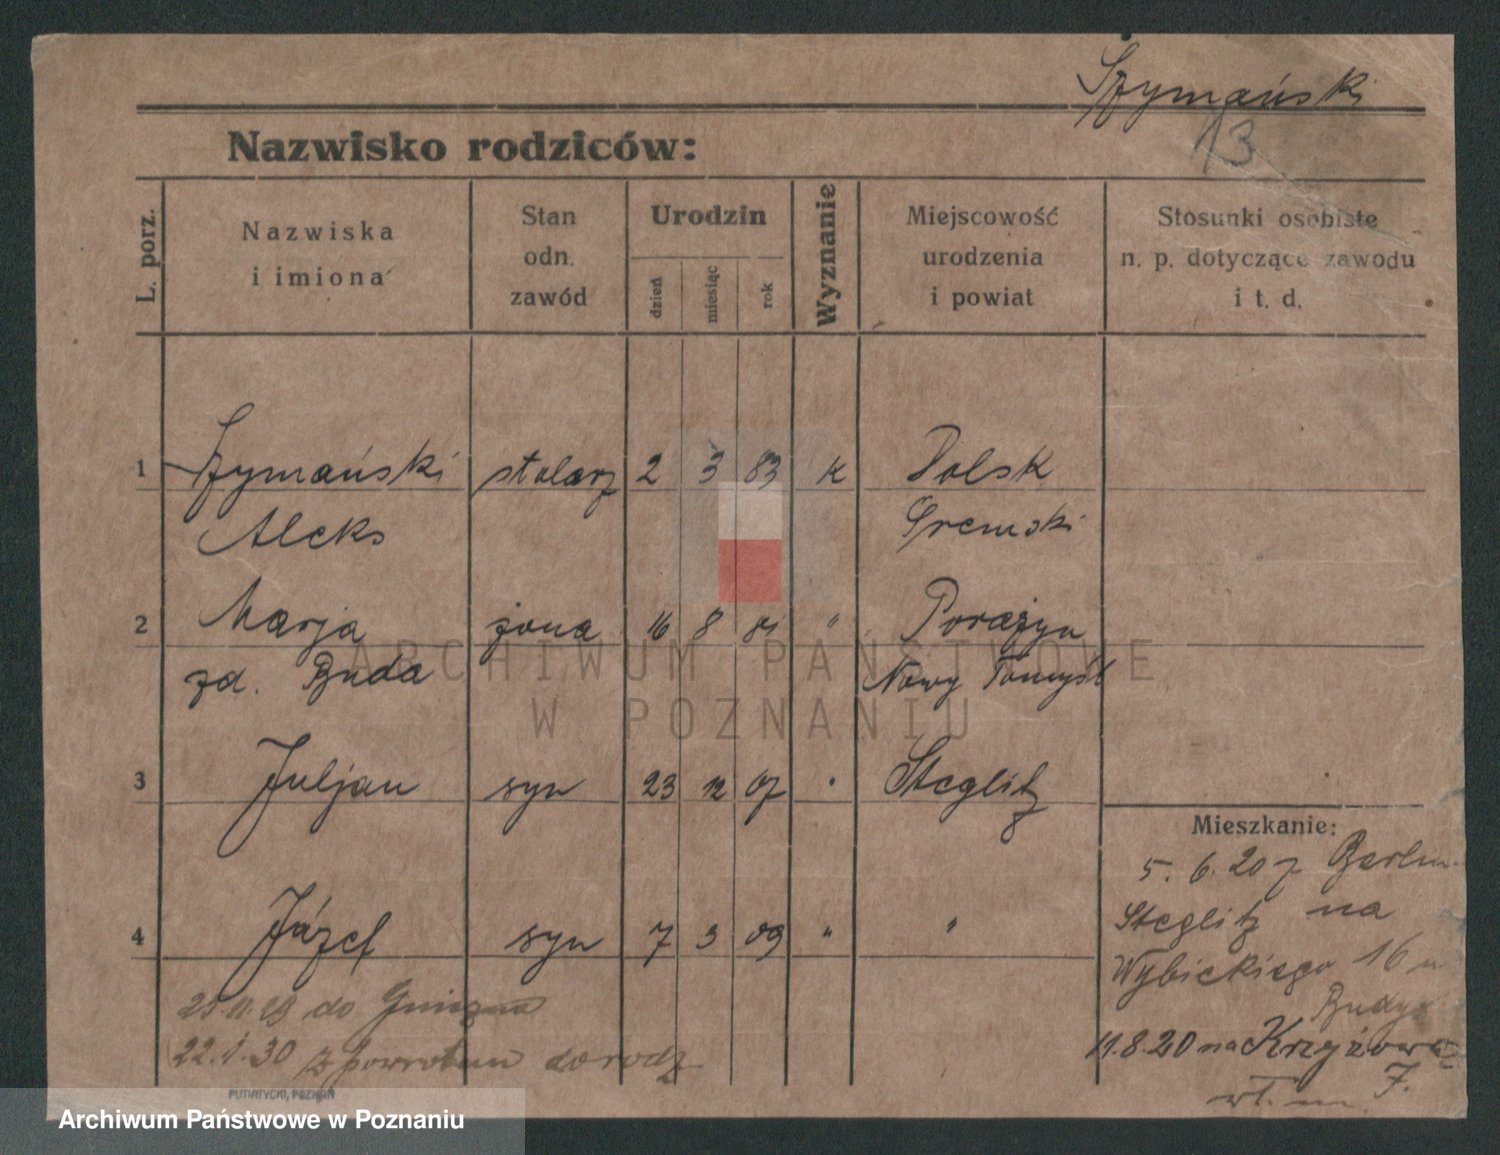 Szymański
13
Nazwisko rodziców:
L. porz.
Nazwiska
i imiona
Stan
odn.
zawód
Urodzin
dzień
miesiąc
rok
Wyznanie
Miejscowość
urodzenia
i powiat
Stosunki osobiste
n. p. dotyczące zawodu
i t. d.
1 Szymański stolarz 2 3 83 k Dolsk
Aleks Śremski
2 Marja żona 16 8 81 " Porażyn
zd. Buda Nowy Tomyśl
3 Juljan syn 23 12 07 " Steglitz
4 Józef syn 7 3 09 " "
do Gniezna
22.1.30 z powrotem do rodz
Mieszkanie:
5.6.20 z Berlin
Steglitz na
Wybickiego 16 u
Budy
11.8.20 na Krzyżowa
7.
wł. m.
PUTIATYCKI, POZNAŃ
ARCHIWUM PAŃSTWOWE
W POZNANIU
Archiwum Państwowe w Poznaniu